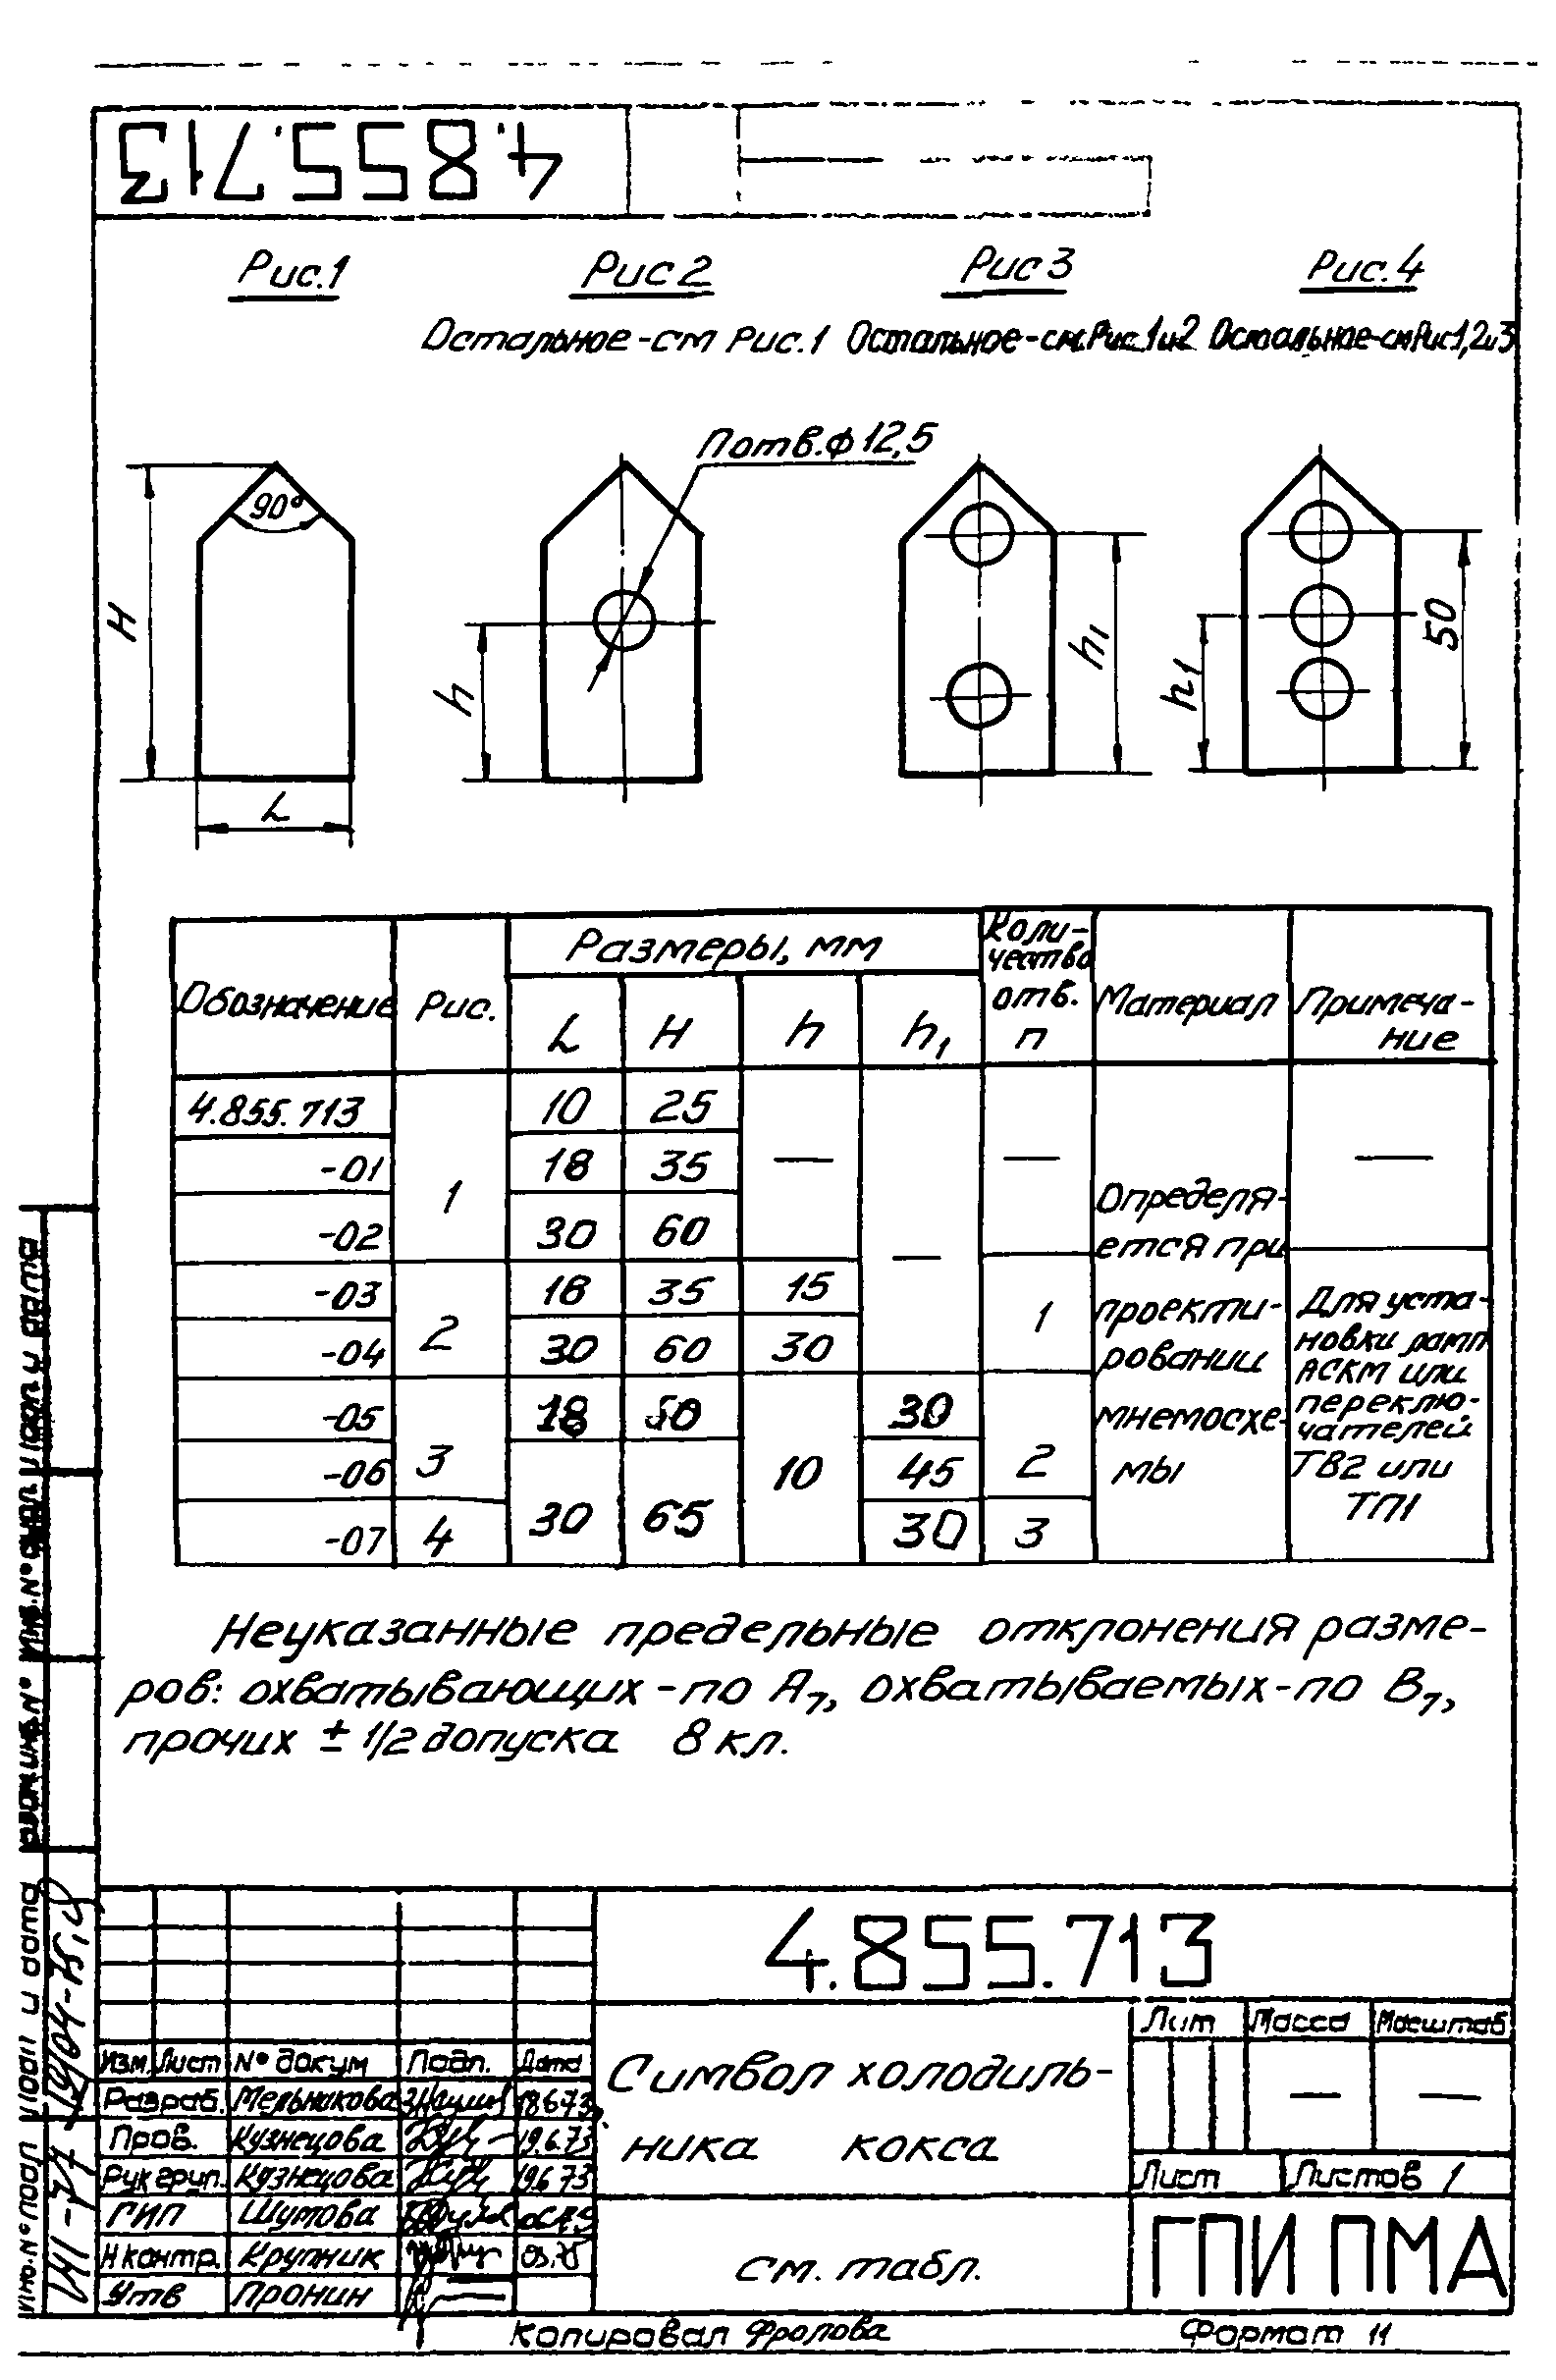 4.855.713
Рис.1
Рис 2
Рис 3
Рис.4
Остальное-см Рис.1
Остальное-см.Рис.1и2
Остальное-смРис1,2и3
90°
H
L
n отв.ф12,5
h
h1
h1
50
Обозначение
Рис.
Размеры, мм
L
H
h
h1
Коли-
чество
отв.
n
Материал
Примеча-
ние
4.855.713
10
25
-01
1
18
35
—
—
—
-02
30
60
—
-03
18
35
15
-04
2
30
60
30
1
-05
18
50
30
-06
3
10
45
2
-07
4
30
65
30
3
Определя-
ется при
проекти-
ровании
мнемосхе-
мы
Для уста-
новки ламп
АСКМ или
переклю-
чателей
ТВ2 или
ТП1
Неуказанные предельные отклонения разме-
ров: охватывающих -по А7, охватываемых-по В7,
прочих ± 1/2 допуска 8 кл.
4.855.713
Изм. Лист № докум Подп. Дата
Разраб. Мельникова 18.6.73
Пров. Кузнецова 19.6.73
Рук груп. Кузнецова 19.6 73
ГИП Шутова
Н контр. Крупник 03.75
Утв Пронин
Символ холодиль-
ника кокса
см. табл.
Лит Масса Масштаб
— —
Лист Листов 1
ГПИ ПМА
Копировал Фролова
Формат 11
Инв.№ подл
Подп и дата
Взам инв.№
Инв.№ дубл
Подп и дата